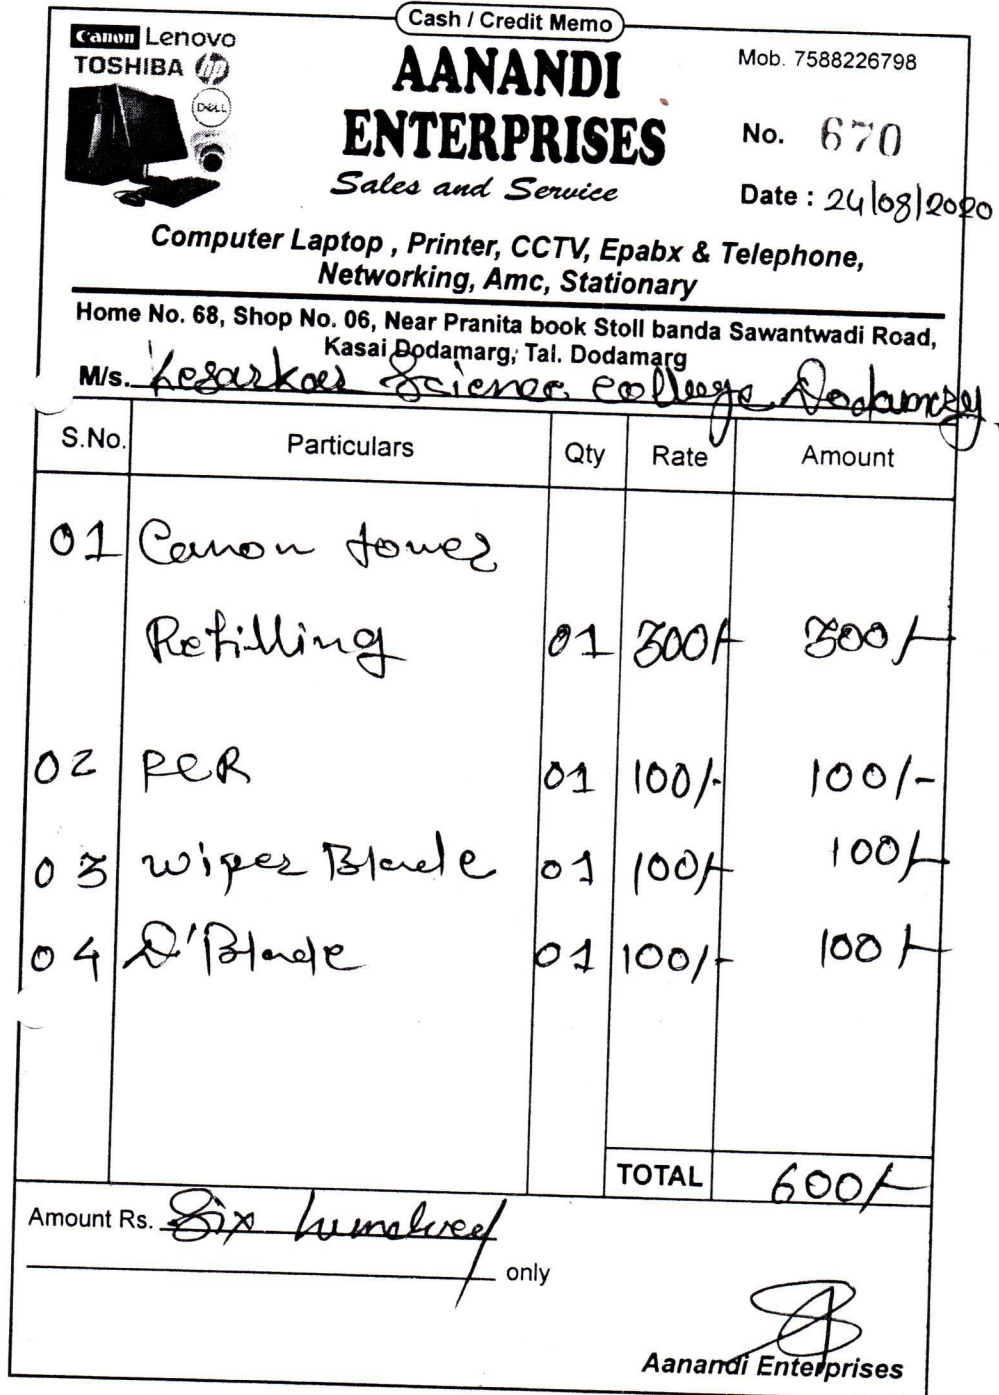 Cash / Credit Memo
Canon Lenovo
TOSHIBA hp
DELL
AANANDI
ENTERPRISES
Sales and Service
Mob. 7588226798
No. 670
Date : 24/08/2020
Computer Laptop , Printer, CCTV, Epabx & Telephone,
Networking, Amc, Stationary
Home No. 68, Shop No. 06, Near Pranita book Stoll banda Sawantwadi Road,
Kasai Dodamarg, Tal. Dodamarg
M/s. Kesarkar Science college Dodamarg
S.No. Particulars Qty Rate Amount
01 Canon toner
Refilling 01 300/- 300/-
02 PCR 01 100/- 100/-
03 wiper Blade 01 100/- 100/-
04 D'Blade 01 100/- 100/-
TOTAL 600/-
Amount Rs. Six hundred
only
Aanandi Enterprises